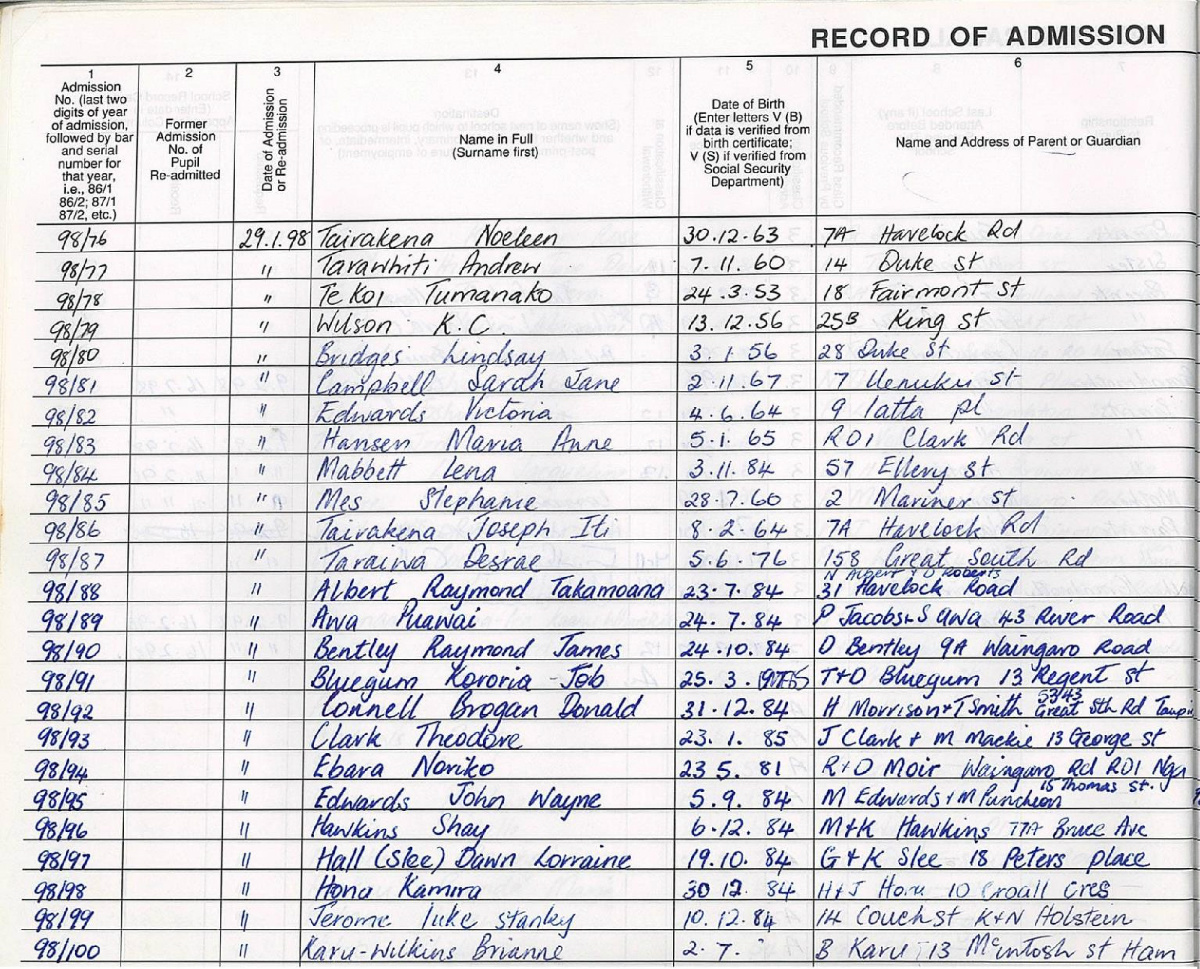 RECORD OF ADMISSION
1 2 3 4 5 6
Admission No. (last two digits of year of admission, followed by bar and serial number for that year, i.e., 86/1 86/2; 87/1 87/2, etc.)
Former Admission No. of Pupil Re-admitted
Date of Admission or Re-admission
Name in Full (Surname first)
Date of Birth (Enter letters V (B) if data is verified from birth certificate; V (S) if verified from Social Security Department)
Name and Address of Parent or Guardian
98/76 29.1.98 Tairakena Noeleen 30.12.63 7A Havelock Rd
98/77 " Tarawhiti Andrew 7.11.60 14 Duke st
98/78 " Te Koi Tumanako 24.3.53 18 Fairmont st
98/79 " Wilson K.C 13.12.56 25B King st
98/80 " Bridges Lindsay 3.1.56 28 Duke st
98/81 " Campbell Sarah Jane 2.11.67 7 Uenuku st
98/82 " Edwards Victoria 4.6.64 9 Latta pl
98/83 " Hansen Maria Anne 5.1.65 RD1 Clark Rd
98/84 " Mabbett Lena 3.11.84 57 Ellery st
98/85 " Mes Stephanie 28.7.60 2 Mariner st
98/86 " Tairakena Joseph Iti 8.2.64 7A Havelock Rd
98/87 " Taraiwa Desrae 5.6.76 158 Great South Rd
N Albert & D Roberts
98/88 " Albert Raymond Takamoana 23.7.84 31 Havelock Road
98/89 " Awa Puawai 24.7.84 P Jacobs+S Awa 43 River Road
98/90 " Bentley Raymond James 24.10.84 D Bentley 9A Waingaro Road
98/91 " Bluegum Kororia-Job 25.3. T+D Bluegum 13 Regent st
53/43
98/92 " Connell Brogan Donald 31.12.84 H Morrison+T Smith Great Sth Rd
98/93 " Clark Theodore 23.1.85 J Clark + M Mackie 13 George st
98/94 " Ebara Noriko 23 5. 81 R+D Moir Waingaro Rd RD1
15 Thomas st.
98/95 " Edwards John Wayne 5.9.84 M Edwards + M Puncheon
98/96 " Hawkins Shay 6.12.84 M+K Hawkins 77A Bruce Ave
98/97 " Hall (Slee) Dawn Lorraine 19.10.84 G+K Slee 18 Peters place
98/98 " Hona Kamira 30 12. 84 H+J Hona 10 Croall Cres
98/99 " Jerome Luke Stanley 10.12.84 14 Couch st K+N Holstein
98/100 " Karu-Wilkins Brianne 2.7. B Karu 13 McIntosh st Ham